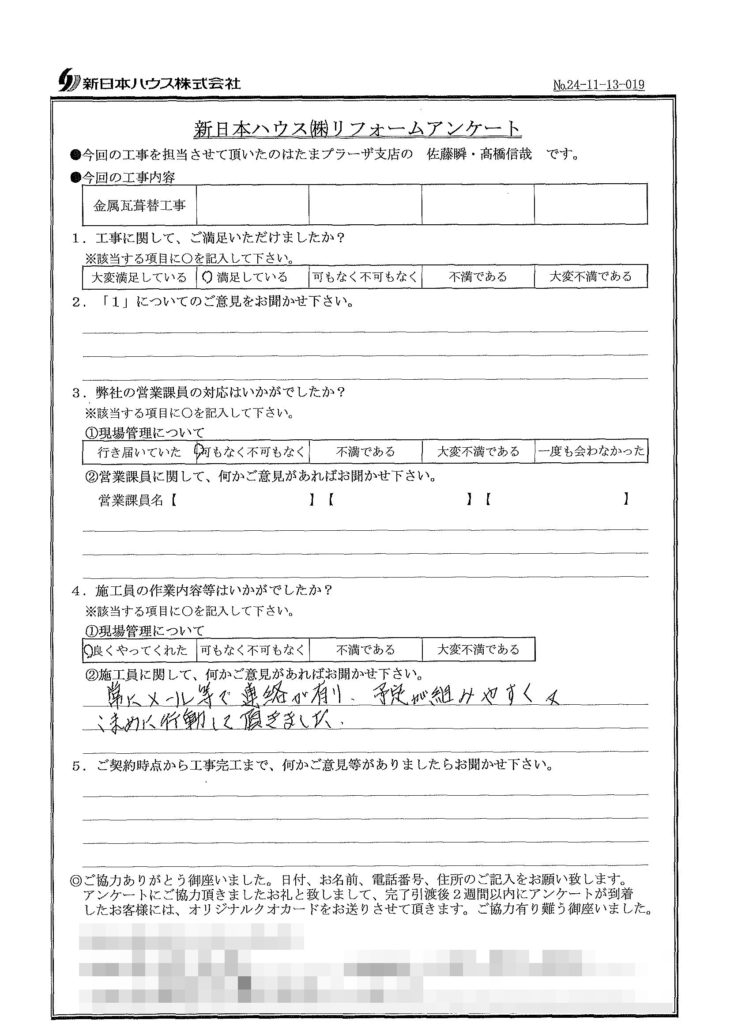 新日本ハウス株式会社
№24-11-13-019
新日本ハウス㈱リフォームアンケート
●今回の工事を担当させて頂いたのはたまプラーザ支店の 佐藤瞬・髙橋信哉 です。
●今回の工事内容
金属瓦葺替工事
1．工事に関して、ご満足いただけましたか？
※該当する項目に○を記入して下さい。
大変満足している ○ 満足している 可もなく不可もなく 不満である 大変不満である
2．「1」についてのご意見をお聞かせ下さい。
3．弊社の営業課員の対応はいかがでしたか？
※該当する項目に○を記入して下さい。
①現場管理について
行き届いていた ○可もなく不可もなく 不満である 大変不満である 一度も会わなかった
②営業課員に関して、何かご意見があればお聞かせ下さい。
営業課員名【 】【 】【 】
4．施工員の作業内容等はいかがでしたか？
※該当する項目に○を記入して下さい。
①現場管理について
○良くやってくれた 可もなく不可もなく 不満である 大変不満である
②施工員に関して、何かご意見があればお聞かせ下さい。
常にメール等で連絡が有り、予定が組みやすく
こまめに行動して頂きました.
5．ご契約時点から工事完工まで、何かご意見等がありましたらお聞かせ下さい。
◎ご協力ありがとう御座いました。日付、お名前、電話番号、住所のご記入をお願い致します。
アンケートにご協力頂きましたお礼と致しまして、完了引渡後２週間以内にアンケートが到着
したお客様には、オリジナルクオカードをお送りさせて頂きます。ご協力有り難う御座いました。